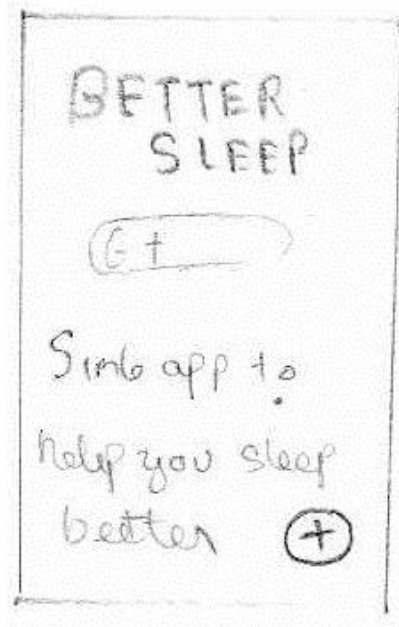 BETTER
SLEEP
G+
Simle app to
help you sleep
better +